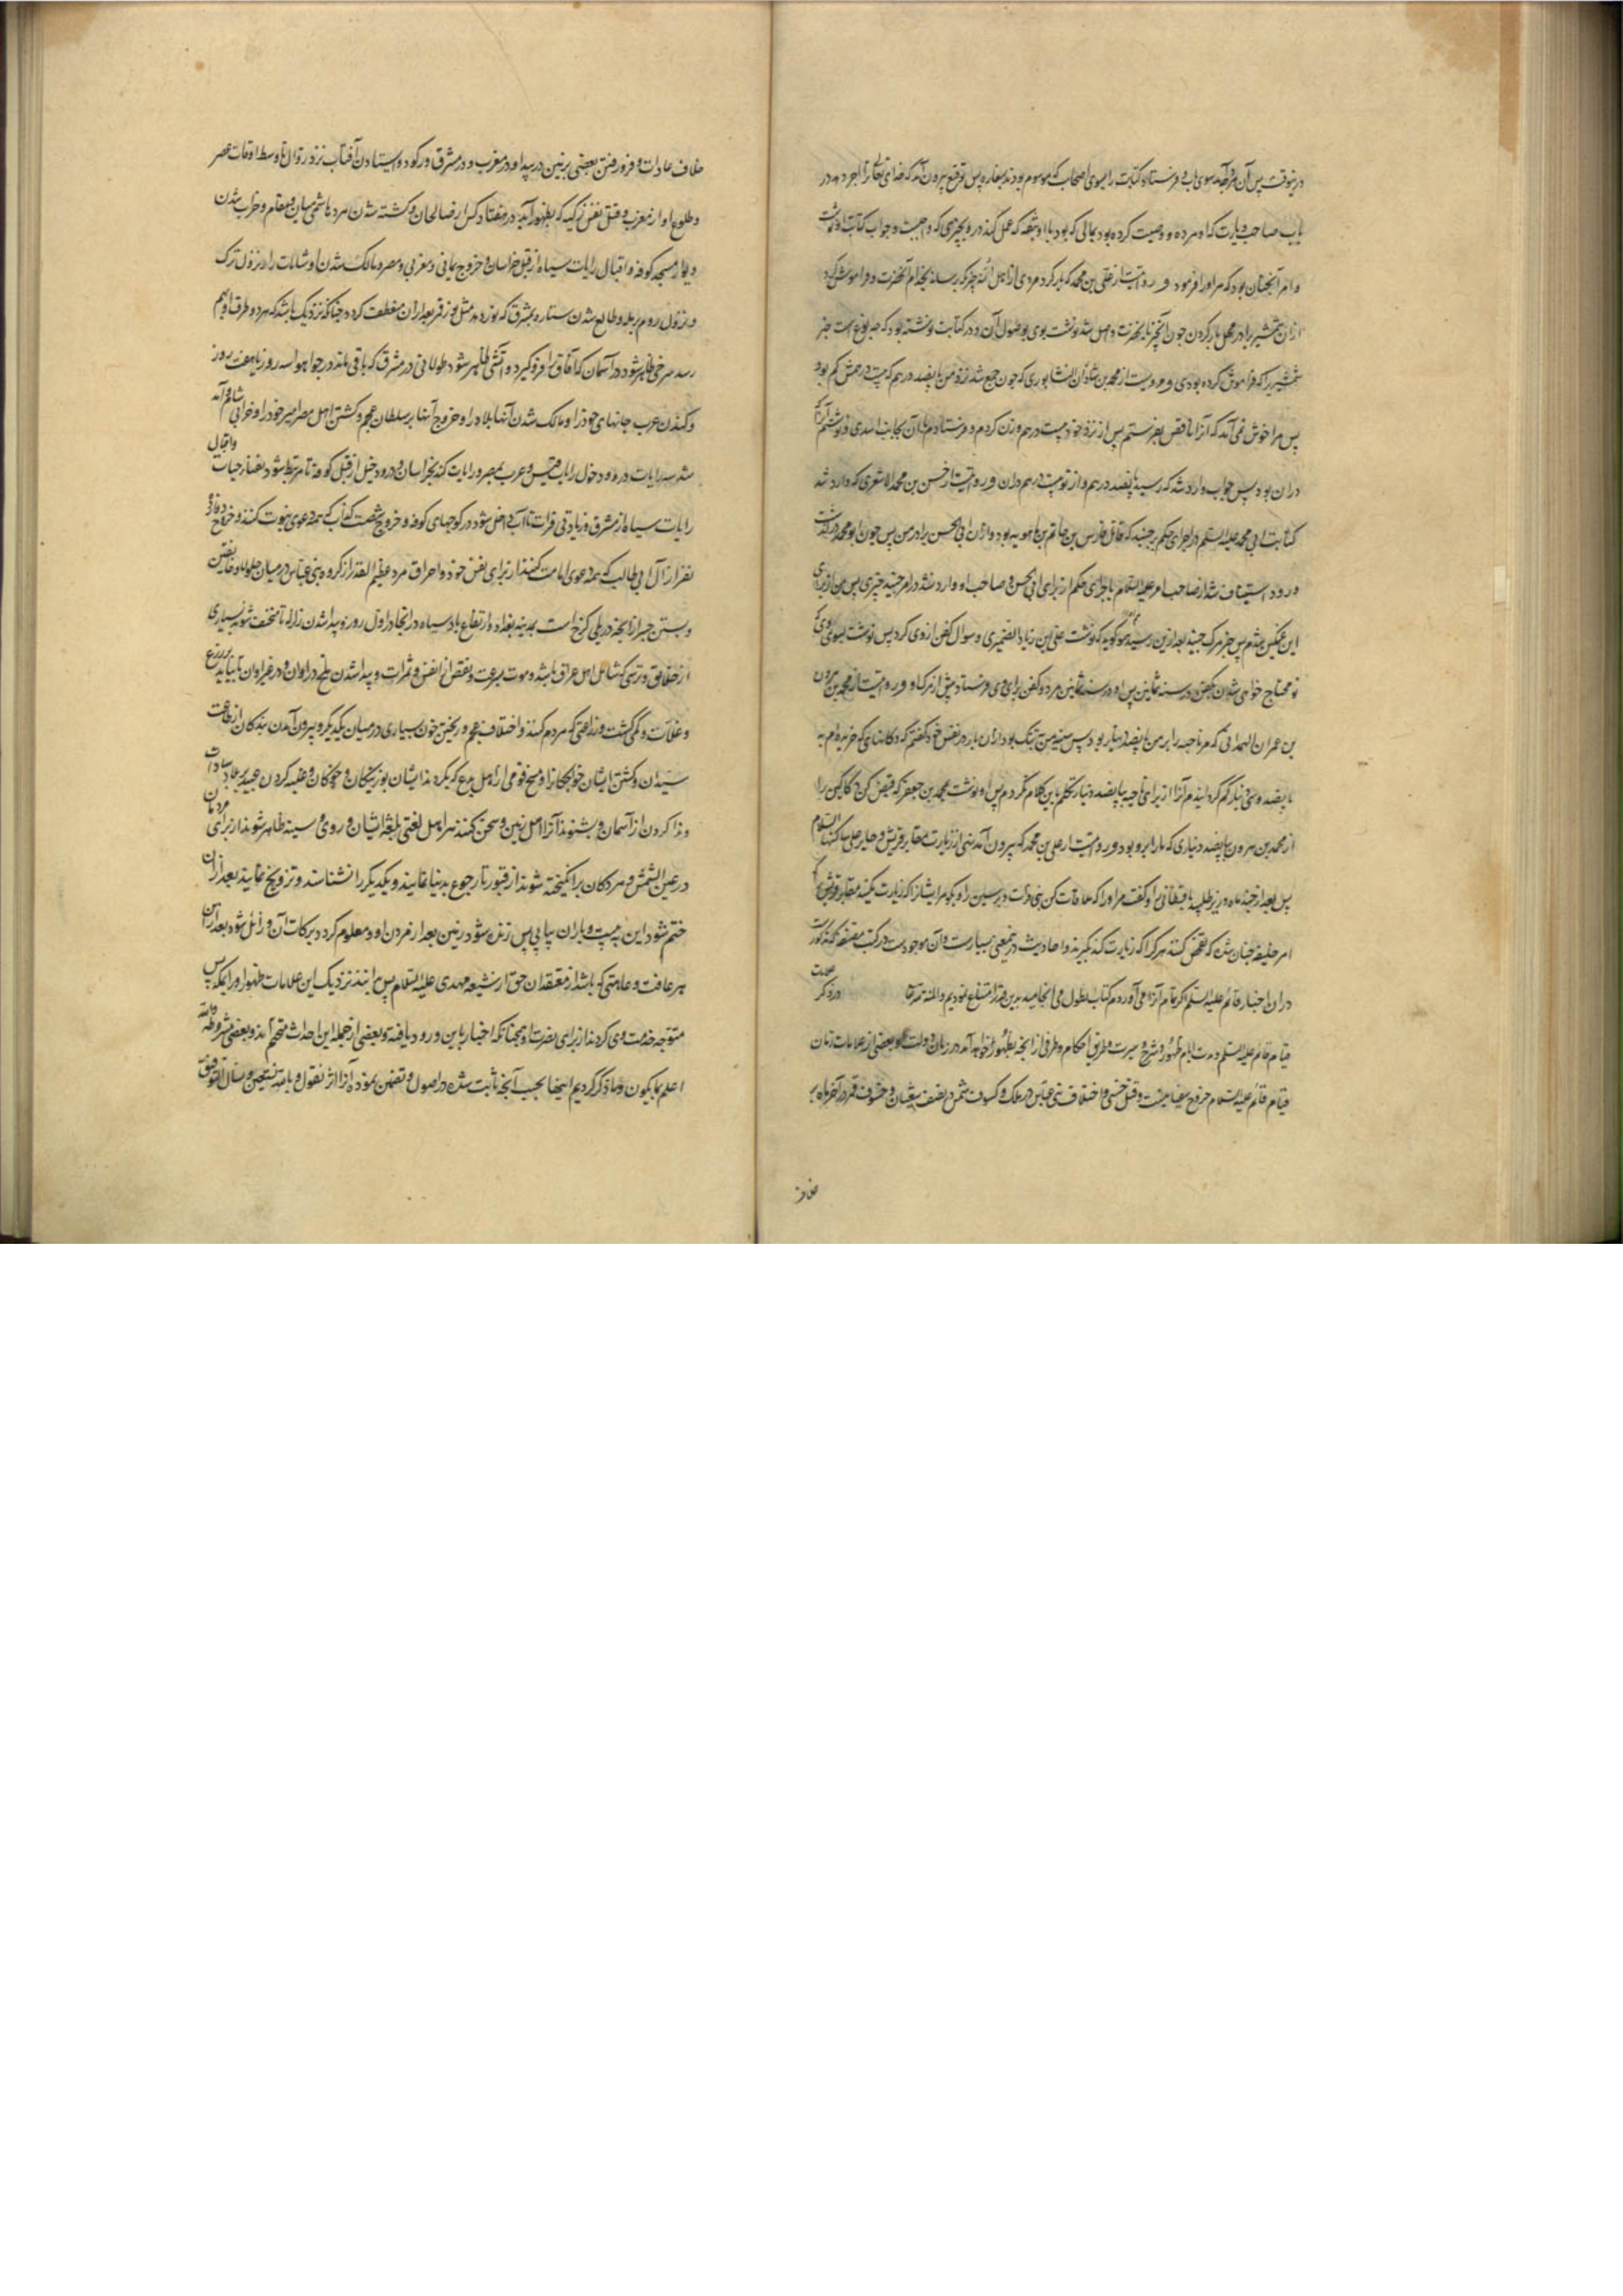 باب صاحب زیارت که او مرده و وصیت کرده بود بمالی که بود با او بثقه که عمل کند درو بچیزی که واجبست و جواب کتابت او نوشت
و امر آنچنان بود که مر او را فرمود و روایتست از علی بن محمد که بار کرد مردی از اهل چیزی که برساند بخدام آنحضرت و فراموش کرد
شمشیر را که فراموش کرده بودی و مرویست از محمد بن شاذان النشابوری که جون جمع شد نزد من پانصد درهم که بیست درهمش کم بود
پس مرا خوش نمی آمد که آنرا ناقص بفرستم پس از نزد خود بیست درهم وزن کردم و فرستادم بآن بجانب اسدی و ننوشتم
دران بود پس جواب وارد شد که رسید پانصد درهم و از تو بیست درهم دران و روایتست از حسن بن محمد الاشعری که وارد شد
کتابت ابی محمد علیه السلم در اجرای حکم بر جنید که قاتل فارس بن حاتم بن ماهویه بود و ازان ابی الحسن برادر من پس جون ابو محمد درگذشت
ورود استیناف شد از صاحب امر علیه السلام باجرای حکم از برای ابی الحسن و صاحب او و وارد نشد در امر جنید چیزی پس من از برای
این غمگین شدم پس خبر مرگ جنید بعد ازین رسید و همو گوید که نوشت علی بن زیاد الضمیری و سوال کفن از وی کرد پس نوشت بسوی وی که
تو محتاج خواهی شدن بکفن در سنه ثمانین پس او در سنه ثمانین مرد و کفن برای وی فرستاد پیش از مرگ او و روایتست از محمد بن هرون
بن عمران الهمدانی که مر ناحیه را بر من پانصد دینار بود پس سینه من تنگ بود ازان بار در نفس خود گفتم که دکانهائی که خریده ام به
پانصد وسی دینار کم گردانیدم آنرا از برای ناحیه بپانصد دینار و تکلم باین کلام نکردم پس او نوشت بمحمد بن جعفر که قبض کن دکاکین را
از محمد بن هرون بپانصد دیناری که ما را برو بود و روایتست از علی بن محمد که بیرون آمد نهی از زیارت مقابر قریش و حایر علی ساکنهما السلام
پس بعد از چند ماه وزیر طلبید باقطانی را و گفت مر او را که ملاقات کن بنی فرات و برسین را و بگو مر ایشانرا که زیارت نکنند مقابر قریش را که
امر خلیفه چنان شده که تفحص کنند هر کرا که زیارت کند بگیرند و احادیث درین معنی بسیارست و آن موجودست در کتب مصنفه که مذکورست
دران اخبار قائم علیه السلم اگر تمام آنرا می آوردم کتاب بطول می انجامید بدین قدر اقتناع نمودیم والمنة لله در ذکر علامات
قیام قائم علیه السلم و مدت ایام ظهور و شرح و سیرت و طریق احکام و طرفی از آنچه بظهور خواهد آمد در زمان دولت او بعضی از علامات زمان
قیام قائم علیه السلام خروج سفیانیست و قتل حسنی و اختلاف بنی عباس در ملک و کسوف شمس در نصف شعبان و خسوف قمر در آخر ماه بر
خلاف
خلاف عادات و فرو رفتن بعضی بزمین در بیدا و در مغرب و در مشرق و رکود و ایستادن آفتاب نزد زوال تا وسط اوقات عصر
و طلوع او از مغرب و قتل نفس زکیه که بظهور آید در هفتاد کس از صالحان و کشته شدن مرد هاشمی میان رکن و مقام و خراب شدن
دیوار مسجد کوفه و اقبال رایات سیاه از قبل خراسان و خروج یمانی و مغربی و مصر و مالک شدن او شامات را و نزول ترک
و نزول روم برمله و طالع شدن ستاره بمشرق که نور دهد مثل نور قمر بعد ازان منعطف گردد چنانکه نزدیک باشد که هر دو طرف او بهم
رسد و سرخی ظاهر شود در آسمان که آفاق را فرو گیرد و آتشی ظاهر شود طولانی در مشرق که باقی ماند در جو هوا سه روز یا هفت روز
و کندن عرب جانهای خود را و مالک شدن آنها بلاد را و خروج آنها بر سلطان عجم و کشتن اهل مصر امیر خود را و خرابی شام و آمد
شد سه رایات درو و دخول رایات قیس و عرب بمصر و رایات کنده بخراسان و ورود خیل از قبل کوفه تا مرتبط شود بفناء حیات و اقبال
رایات سیاه از مشرق و زیادتی فرات تا آب داخل شود در کوچهای کوفه و خروج شصت کذاب که همه دعوی نبوت کنند و خروج دوازده
نفر از آل ابی طالب که همه دعوی امامت کنند از برای نفس خود و احراق مرد عظیم القدر از گروه بنی عباس در میان جلولا و خانقین
و بستن جسر از آنچه در پلی کرخ است بمدینه بغداد و ارتفاع باد سیاه در آنجا در اول روز و پیدا شدن زلزله تا منخسف شود بسیاری
از خلایق و ترسی که شامل اهل عراق باشد و موت بسرعت و نقص از انفس و ثمرات و پیدا شدن ملخ در اوان و در غیر اوان تا بیاید بزرع
و غلات و کمی کشت و زراعتی که مردم کنند و اختلاف عجم و ریختن خون بسیاری در میان یکدیگر و بیرون آمدن بندگان از طاعت
سیدان و کشتن ایشان خواجگانرا و مسخ قومی از اهل بدع که بگردند ایشان بوزینگان و خوکان و غلبه کردن عبید بر بلاد سادات
و ندا کردن از آسمان و بشنوند آنرا اهل زمین و سخن کنند هر اهل لغتی بلغت ایشان و روی و سینه ظاهر شوند از برای مردمان
در عین الشمس و مردگان برانگیخته شوند از قبور تا رجوع بدنیا نمایند و یکدیگر را بشناسند و تزویج نمایند بعد ازان
ختم شود این به بیست و باران پیاپی پس زنده شود زمین بعد از مردن او و معلوم گردد برکات آن و زائل شود بعد ازین
هر عاهت و علتی که باشد از معتقدان حق از شیعه مهدی علیه السلام پس دانند نزدیک این علامات ظهور او را بمکه پس
متوجه خدمت وی گردند از برای نصرت او همچنانکه اخبار باین ورود یافته و بعضی از جمله این احداث متحتم اند و بعضی مشروطه والله
اعلم بما یکون و ما ذکر کردیم اینها بحسب آنچه ثابت شده در اصول و تضمن نموده آنرا اثر منقول و بالله نستعین و نسأل التوفیق